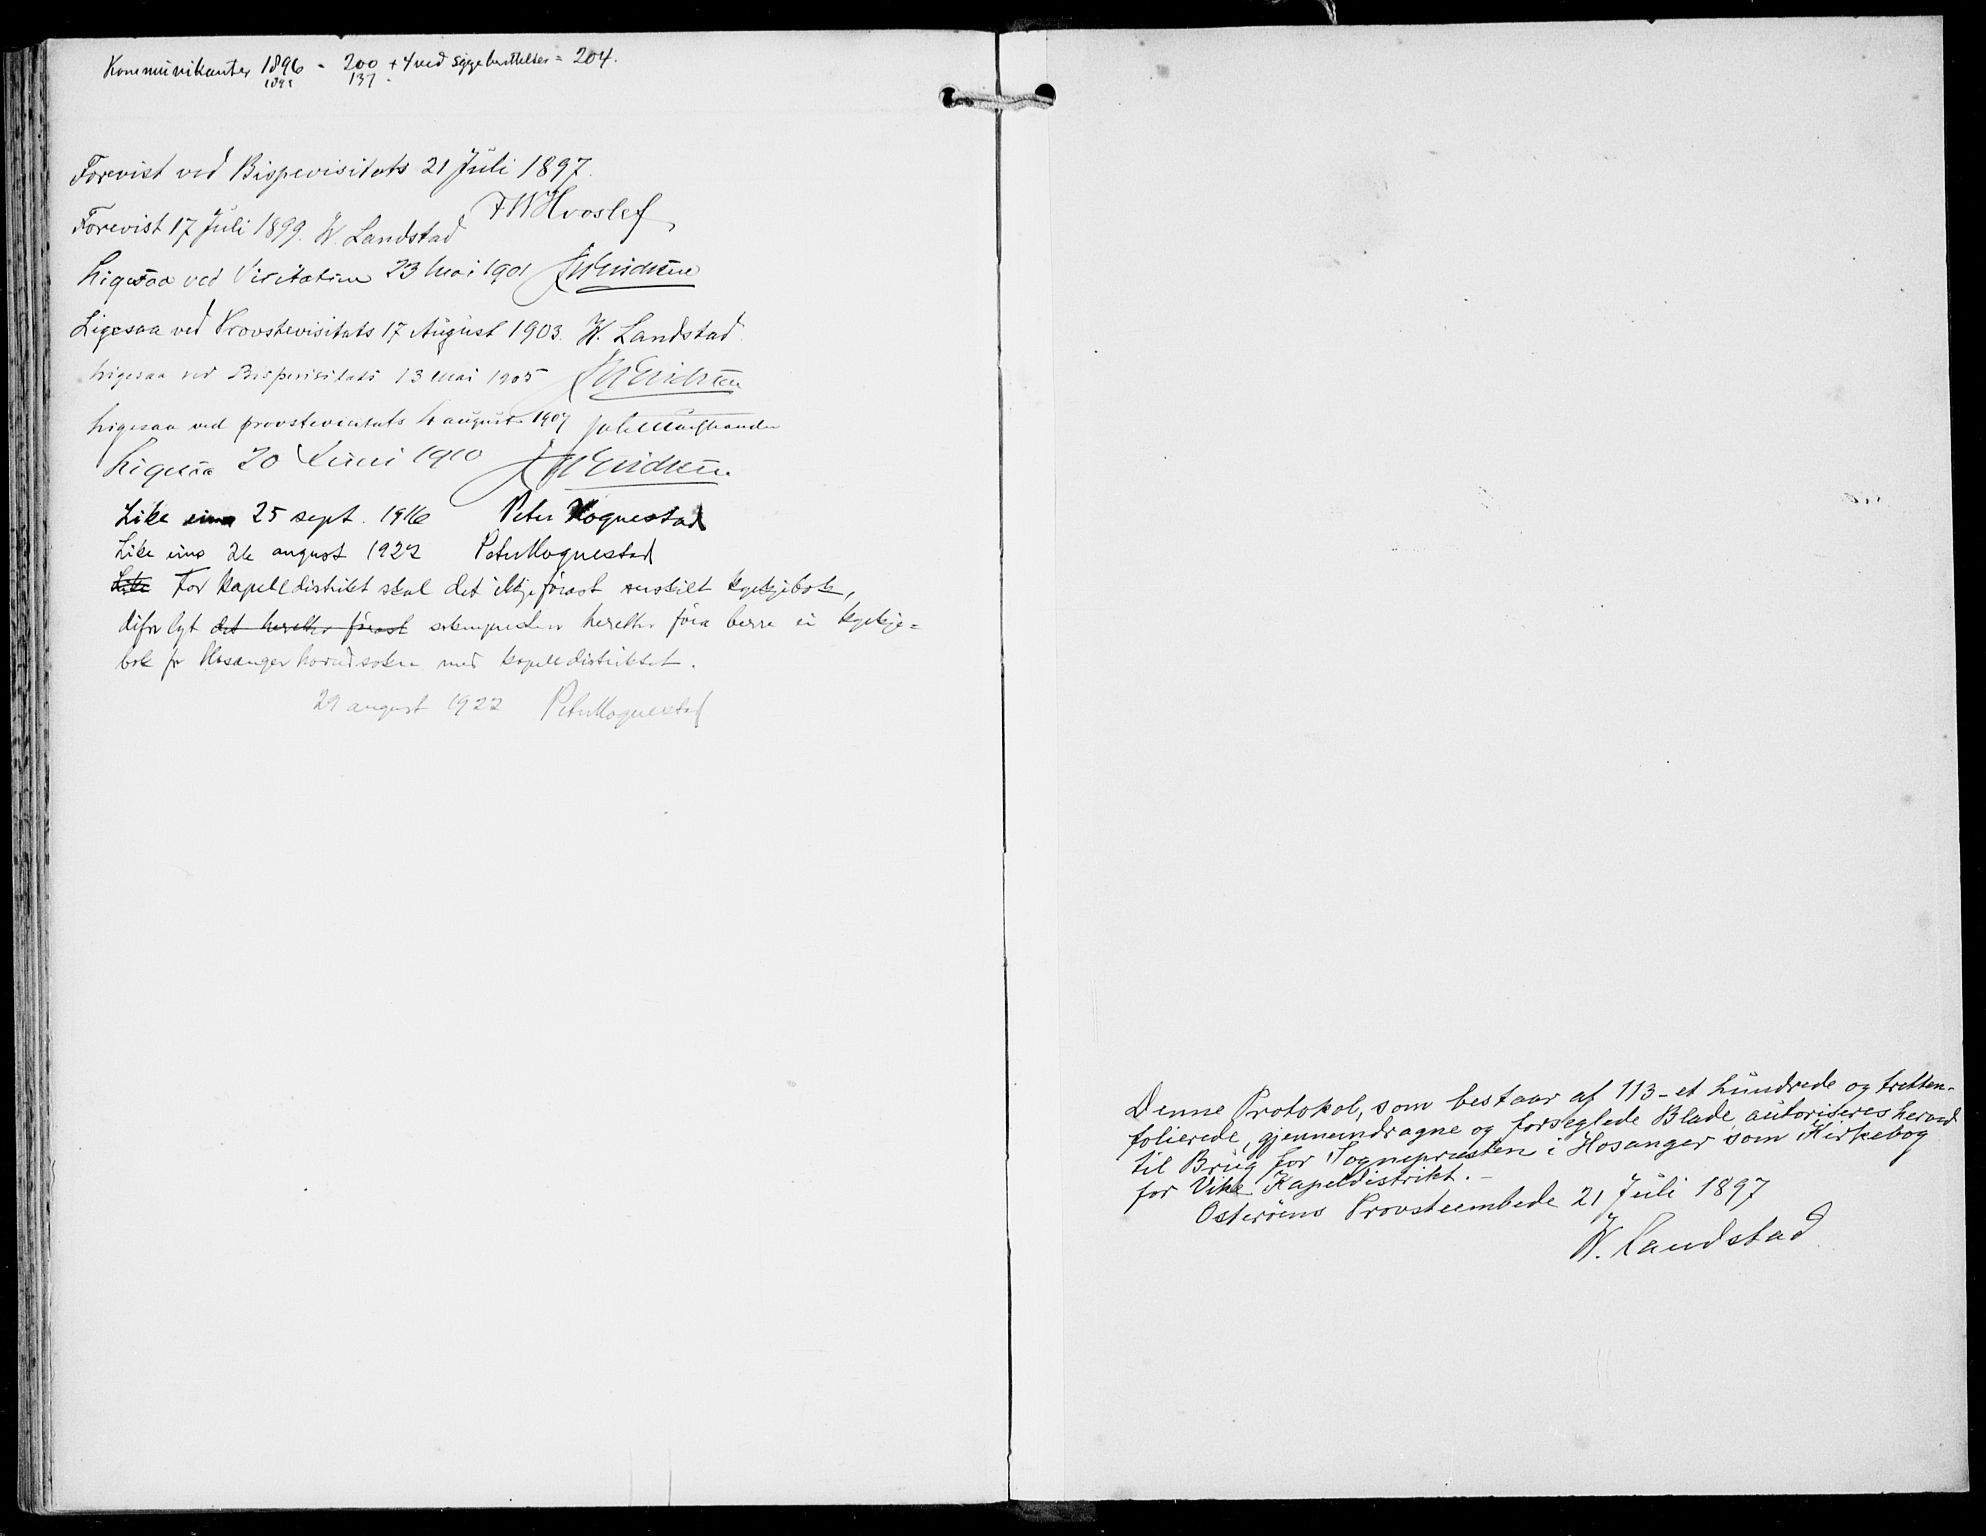 Kommunikanter 1896 - 200 + 4 ved Sygeberettelser = 204.
1895 137.
Forevist ved Bispevisitats 21 Juli 1897.
F W Hvoslef
Forevist 17 Juli 1899. W. Landstad
Ligesaa ved Visitatsen 23 Mai 1901 J W Erichsen
Ligesaa ved Provstevisitats 17 August 1903. W. Landstad.
Ligesaa ved Bispevisitats 13 Mai 1905 J W Erichsen
Ligesaa ved provstevisitats august 1907
Ligesaa 20 Juni 1910 J W Erichsen
Like eins 25 sept. 1916 Peter Hognestad
Like eins 26 august 1922 Peter Hognestad
Like For kapelldistrikt skal det ikkje førast serskilt kyrkjebok,
difor lyt det heretter førast soknepresten heretter føra berre ei kyrkje-
bok for Hosanger hovudsokn med kapelldistriktet.
29 august 1922 Peter Hognestad
Denne Protokol, som bestaar af 113 - et hundrede og tretten -
folierede, gjennemdragne og forseglede Blade, autoriseres herved
til Brug for Sognepresten i Hosanger som Kirkebog
for Vike Kapeldistrikt. -
Osterøens Provsteembede 21 Juli 1897
W. Landstad